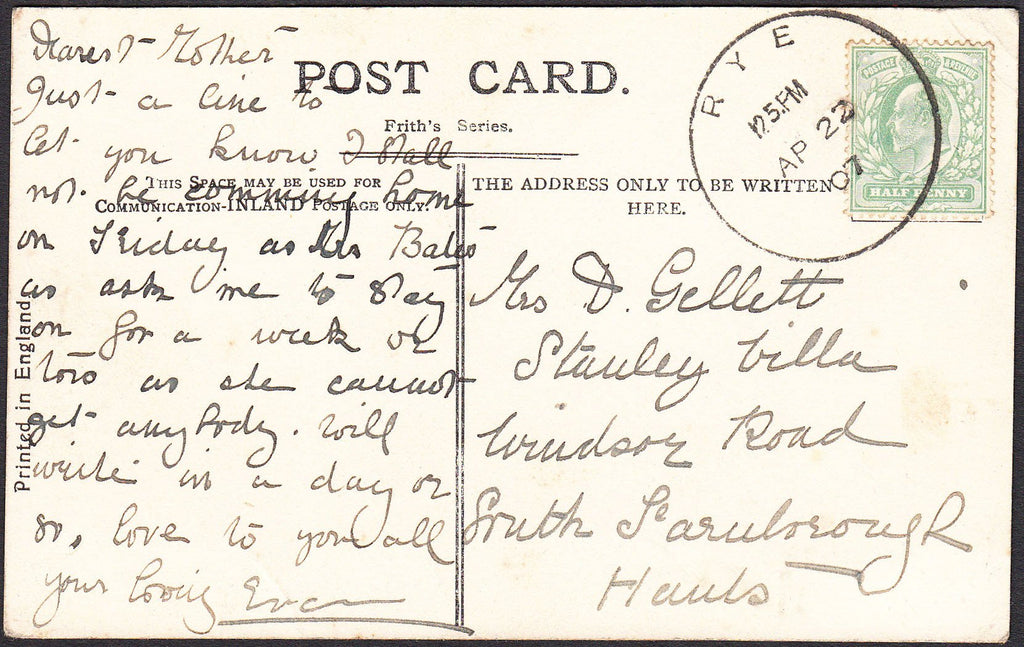 Dearest Mother
Just a line to
let you know I shall
not be comming home
on Friday as Mrs Bates
as ask me to stay
on for a week or
two as she cannot
get anybody. Will
write in a day or
so, love to you all
your loving Eva
POST CARD.
Frith's Series.
THIS SPACE MAY BE USED FOR
COMMUNICATION-INLAND POSTAGE ONLY.
THE ADDRESS ONLY TO BE WRITTEN
HERE.
Printed in England
Mrs D. Gellett
Stanley Villa
Windsor Road
South Farnborough
Hants
RYE
12.5.PM
AP 22
07
POSTAGE & REVENUE
HALF PENNY